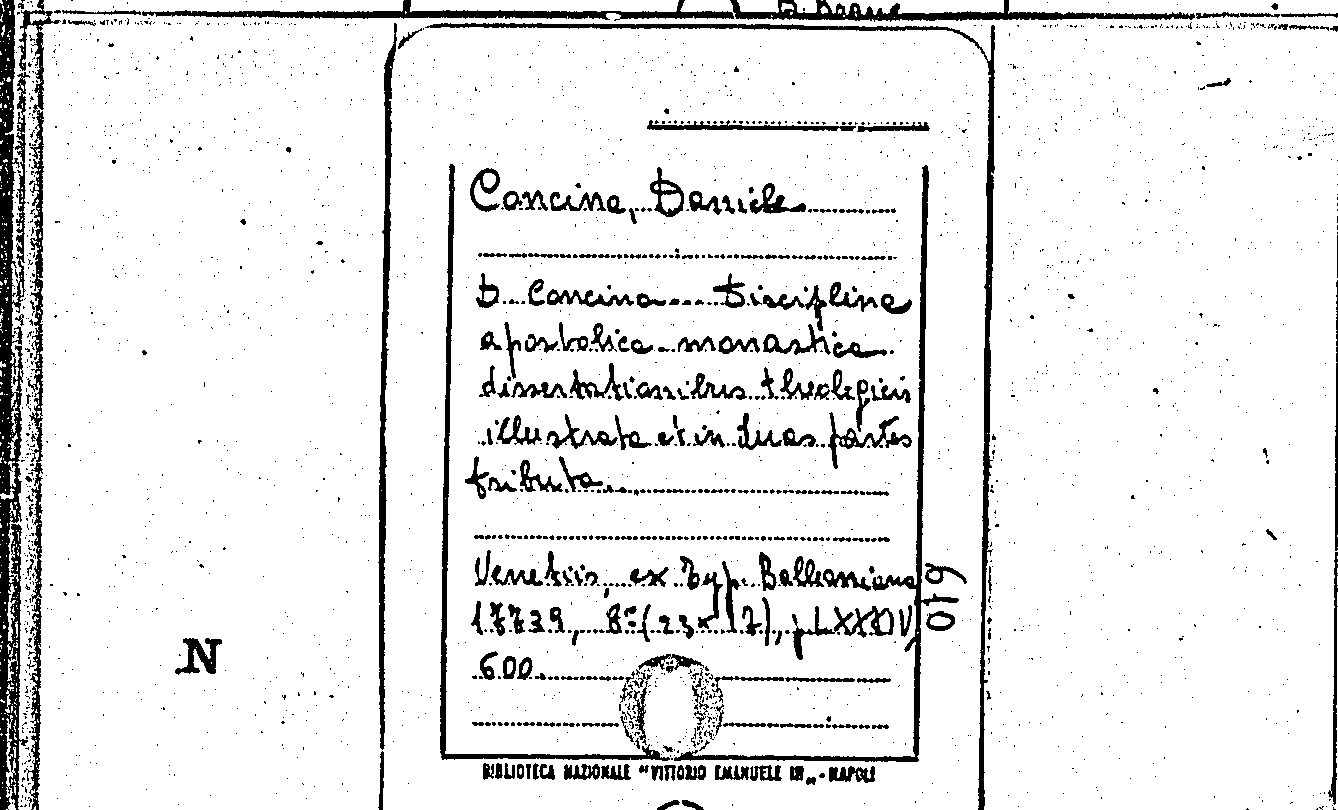 Concina, Daniele
D. Concina.... Disciplina
apostolica-monastica
dissertationibus theologicis
illustrata et in duas partes
tributa.
Venetiis, ex Typ. Balleoniana
17739, 8° (23x17), p. LXXXIV,
600.
640
N
BIBLIOTECA NAZIONALE "VITTORIO EMANUELE III" - NAPOLI